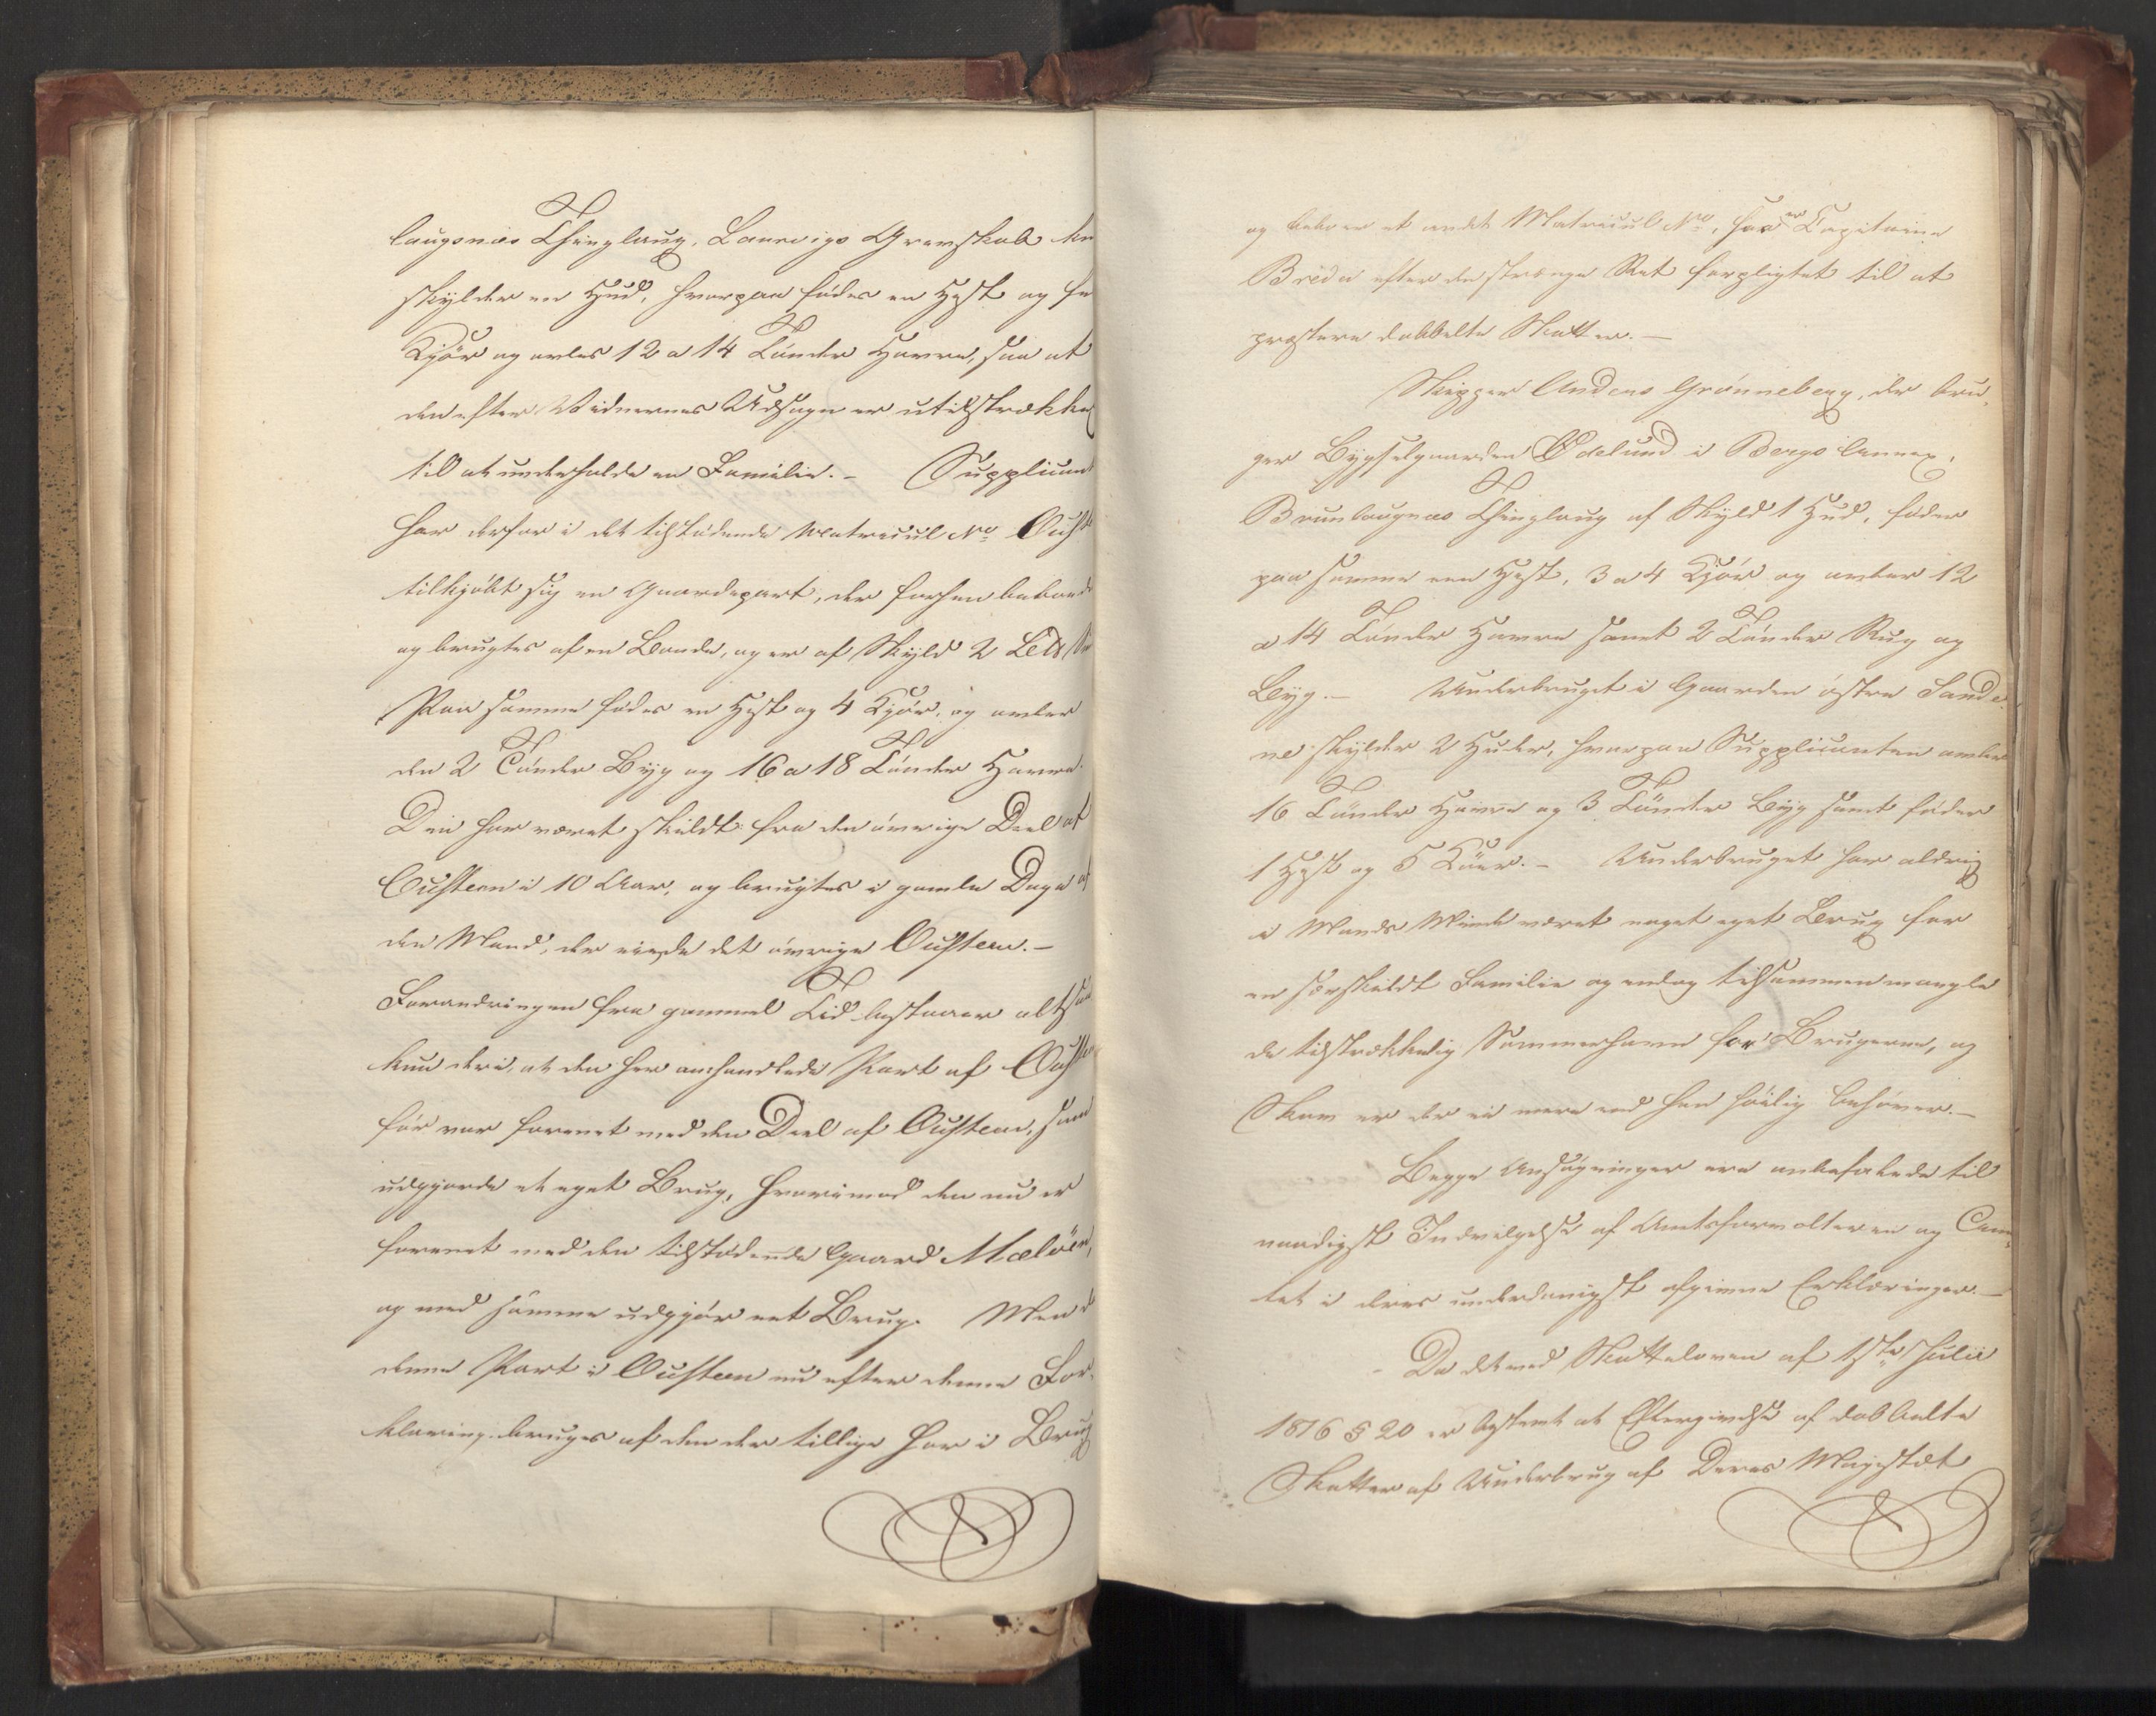 laugsnæs Thinglaug, Laurvigs Grevskab
skylder een Hud, hvorpaa födes en Hest og
Kjör og avles 12 a 14 Tönder Havre, saa at
den efter Vidnernes Udsagn er utilstrække
til at underholde en Familie. - Supplicant
har derfor i det tilstödende Matricul No
tilkjöbt sig en Gaardepart, der forhen beboedes
og brugtes af en Bonde, og er af Skyld 2
Paa samme födes en Hest og 4 Kjör, og avler
den 2 Tönder Byg og 16 a 18 Tönder Havre.
Den har været skildt fra den övrige Deel af
Ousteen i 10 Aar, og brugtes i gamle Dage af
den Mand, der eiede det övrige Ousteen. -
Forandringen fra gammel Tid bestaaer altsaa
kun deri, at den her omhandlede Part af
för var forenet med den Deel af Ousteen, som
udgjorde et eget Brug, hvorimod den nu er
forenet med den tilstödende Gaard Mælöen,
og med samme udgjör eet Brug. Men
denne Part i Ousteen nu efter denne For-
klaring bruges af den der tillige har i Brug
og beboer et andet Matricul No, saa er Capitaine
Breda efter de strænge Ret forpligtet til at
præstere dobbelte Skatter. -
Skipper Anders Grönneberg, der bru-
ger Bygselgaarden Ödelund i Bergs Annex,
Brunlaugnæs Thinglaug af Skyld 1 Hud, föder
paa samme een Hest, 3 a 4 Kjör og avler 12
a 14 Tönder Havre samt 2 Tönder Rug og
Byg. - Underbruget i Gaarden östre Sande-
ne skylder 2 Huder, hvorpaa Supplicanten avler
16 Tönder Havre og 3 Tönder Byg samt föder
1 Hest og 5 Köer. - Underbruget har aldrig
i Mands Minde været noget eget Brug for
en særskildt Familie og endog tilsammen mangle
de tilstrækkelig Sommerhavn for Brugerne, og
Skov er der ei mere end han höilig behöver. -
Begge Ansögninger ere anbefalede til
naadigst Indvilgelse af Amtsforvalteren og
tet i deres underdanigst afgivne Erklæringer. -
- Da det ved Skatteloven af 1ste Julii
1816 § 20 er bestemt at Eftergivelse af dobbelte
Skatter af Underbrug af Deres Majestæt